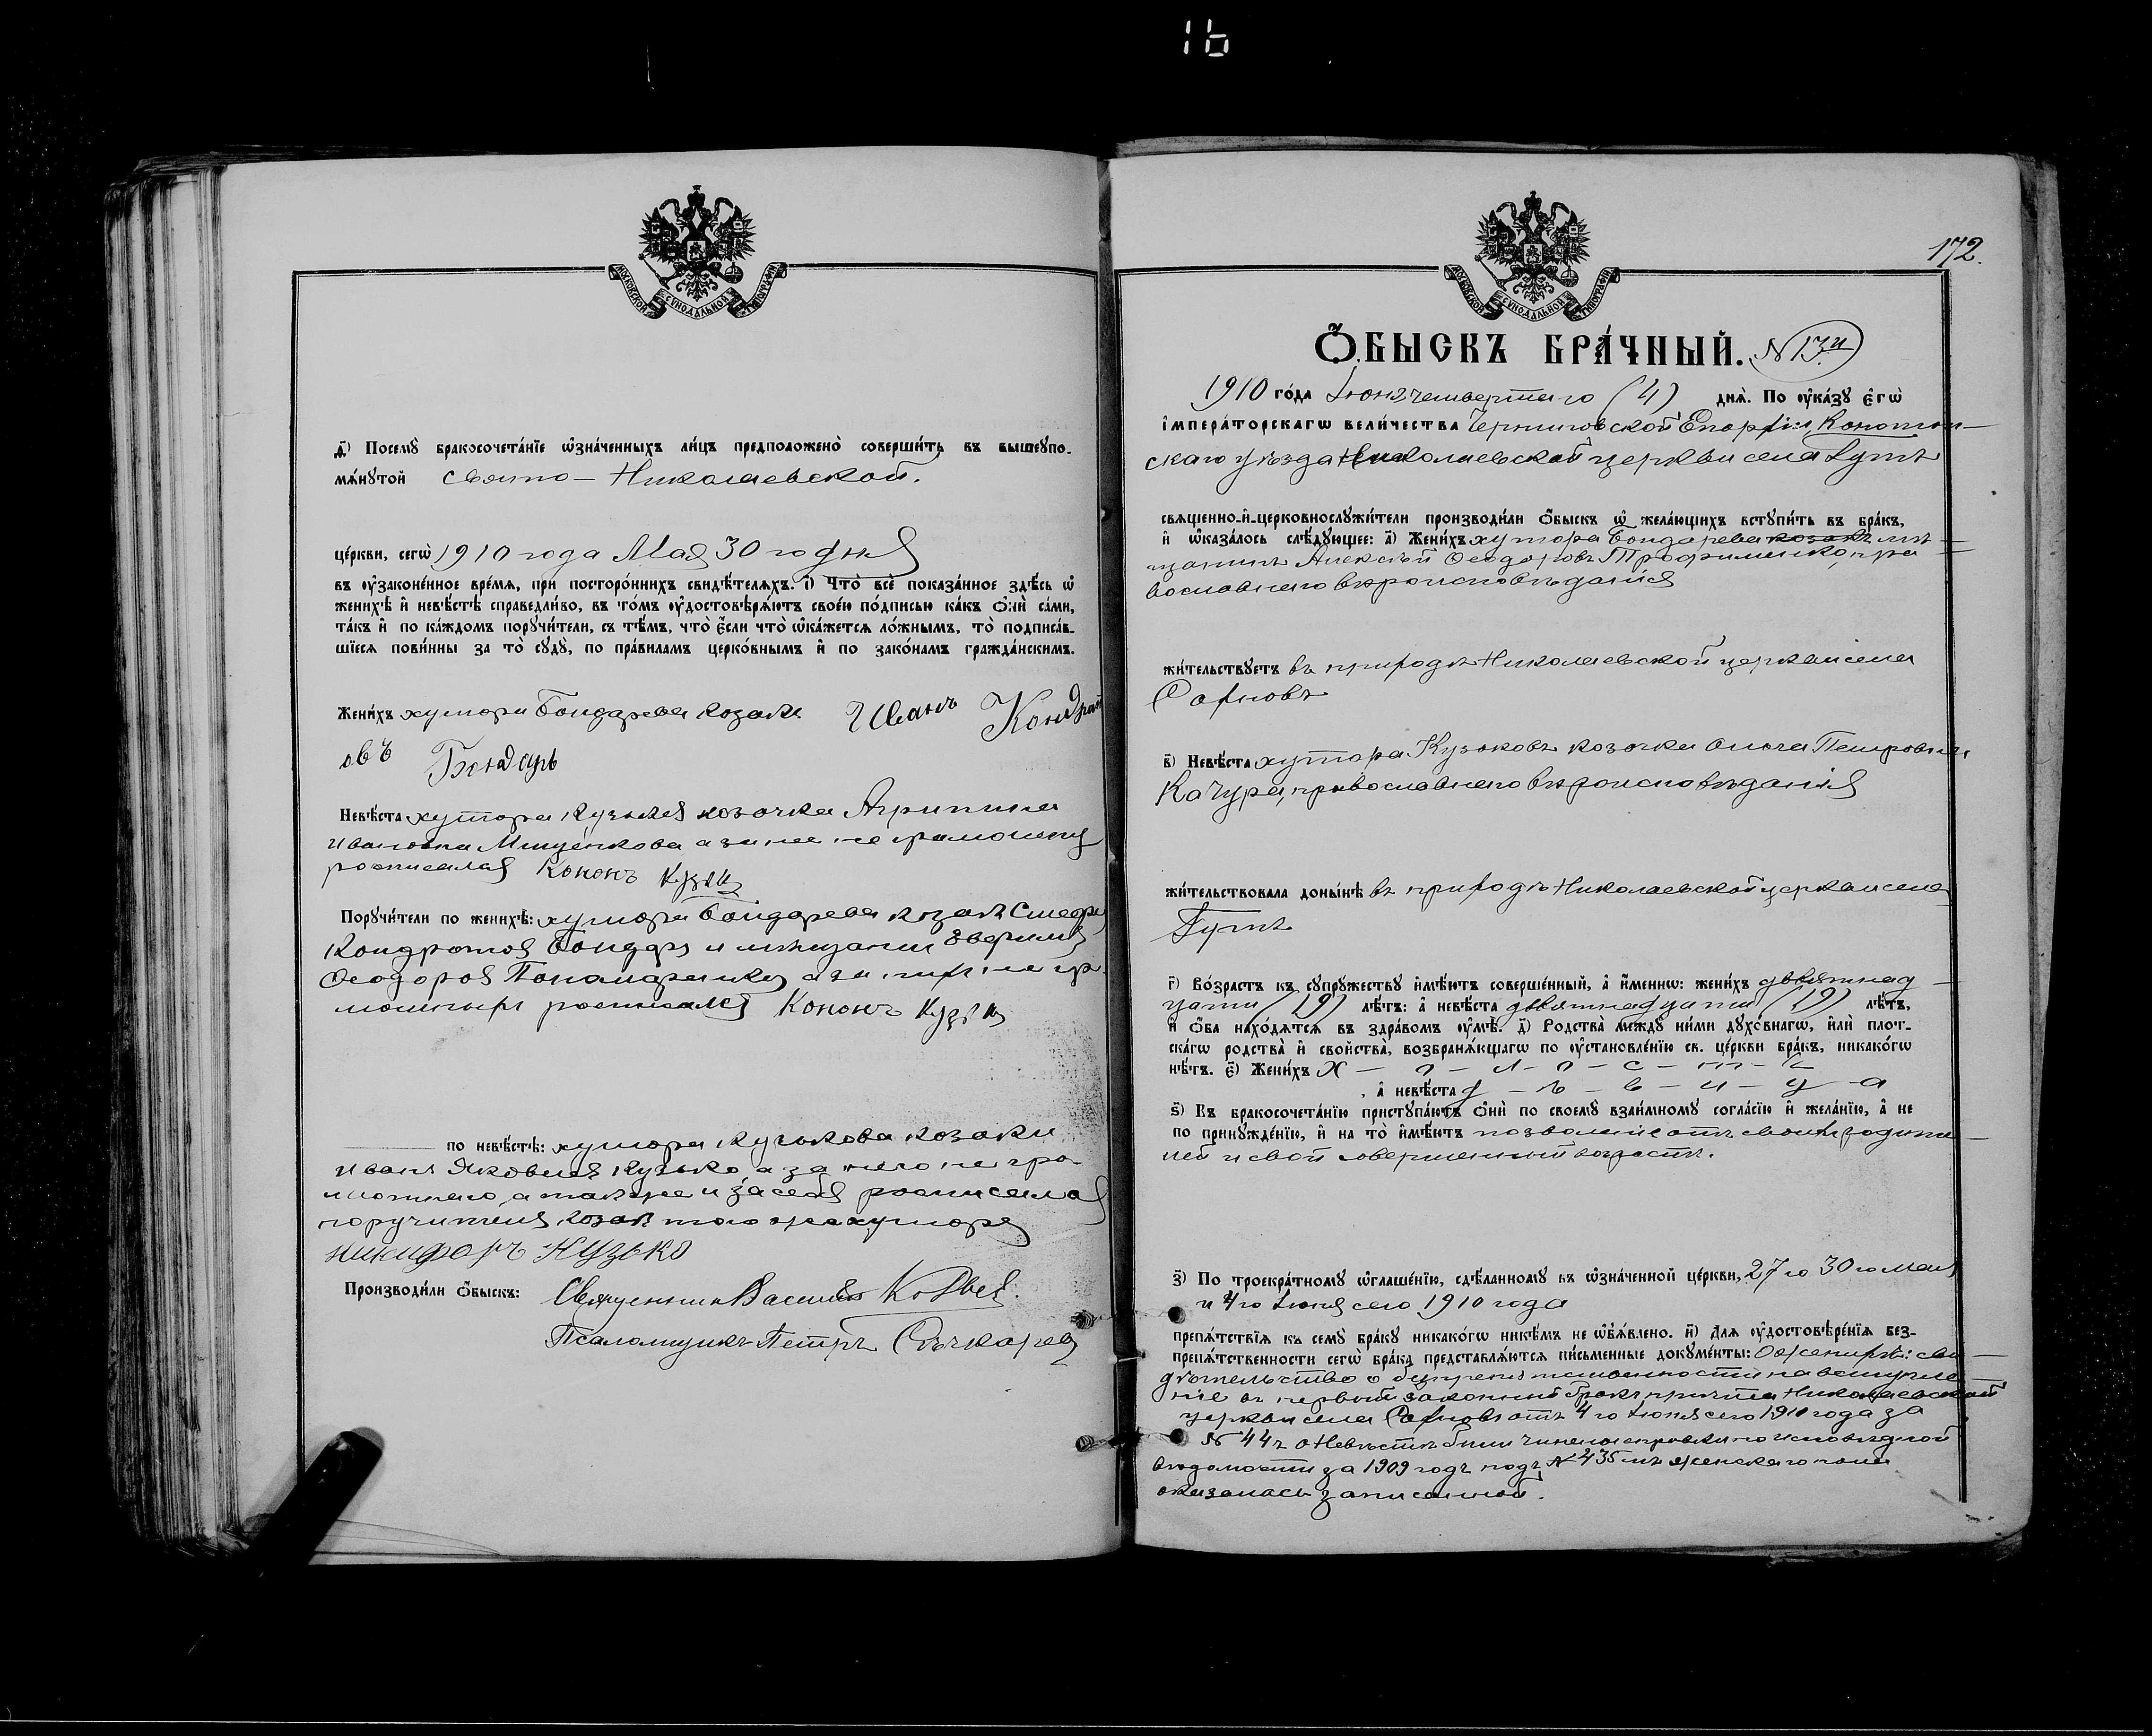 16
МОСКОВСКОЙ СУНОДАЛЬНОЙ ТИПОГРАФІИ
Посемꙋ̀ бракосочета́нїе ѡ҆зна́ченныхъ ли́цъ предположено̀ соверши́ть въ вышеупо-
мѧ́нꙋтой Свято-Николаевской.
це́ркви, сегѡ̀ 1910 года Мая 30 го дня
въ ᲂу҆зако́ненное вре́мѧ, при посторо́ннихъ свидѣ́телѧхъ. і҃) Что̀ всѐ показа́нное здѣ́сь ѡ҆
женихѣ̀ и҆ невѣ́стѣ справедли́во, въ то́мъ ᲂу҆достовѣрѧ́ютъ свое́ю по́дписью ка́къ ѻ҆нѝ са́ми,
та́къ и҆ по ка́ждомъ порꙋчи́тели, съ тѣ́мъ, что̀ є҆́сли что̀ ѡ҆ка́жетсѧ ло́жнымъ, то̀ подписа́в-
шїесѧ пови́нны за то̀ сꙋдꙋ̀, по пра́виламъ церко́внымъ и҆ по зако́намъ гражда́нскимъ.
Жени́хъ хутора Бондарева козакъ Иванъ Кондрат
овъ Бондарь
Невѣ́ста хутора Кузькова козачка Агрипина
Ивановна Мищенкова а за нее не грамотную
росписался Кононъ Кузько
Порꙋчи́тели по женихѣ̀: хутора Бондарева козакъ Стефан
Кондратовъ Бондарь и мещанин Ефримъ
Феодоровъ Понамаренко а за них не гра
мотных росписался Кононъ Кузько
по невѣ́стѣ: хутора Кузькова козаки
Иванъ Яковлевъ Кузько, а за него не гра-
мотнаго, а также и за себя росписался
поручитель козак того же хутора
Никифоръ Кузько
Производи́ли ѻ҆́быскъ: Священник Василій
Псаломщикъ Петръ
172.
МОСКОВСКОЙ СУНОДАЛЬНОЙ ТИПОГРАФІИ
Ѻ҆́БЫСКЪ БРА́ЧНЫЙ. № 13й
1910 го́да Іюня четвертаго (4) днѧ̀. По ᲂу҆ка́зꙋ є҆гѡ̀
і҆мпера́торскагѡ вели́чества Черниговской Епархіи, Конотоп-
скаго уѣзда Николаевской церкви села Гутъ
свѧще́нно-и҆-церковнослꙋжи́тели производи́ли ѻ҆́быскъ ѡ҆ жела́ющихъ встꙋпи́ть въ бра́къ,
и҆ ѡ҆каза́лось слѣ́дꙋющее: а҃) Жени́хъ хутора Бондарева козакъ мѣ-
щанинъ Алексѣй Феодоровъ Трофименко, пра
вославнаго вѣроисповѣданія
жи́тельствꙋетъ въ приходѣ Николаевской церкви села
Сохновъ
в҃) Невѣ́ста хутора Кузьковъ козачка Ольга Петровна
Качура, православнаго вѣроисповѣданія
жи́тельствовала доны́нѣ въ приходѣ Николаевской церкви села
Гутъ
г҃) Во́зрастъ къ сꙋпрꙋ́жествꙋ и҆мѣ́ютъ соверше́нный, а҆ и҆́менно: жени́хъ девятнад-
цати (19) лѣ́тъ: а҆ невѣ́ста девятнадцати (19) лѣ́тъ,
и҆ ѻ҆́ба нахо́дѧтсѧ въ здра́вомъ ᲂу҆мѣ̀. д҃) Родства̀ ме́ждꙋ ни́ми дꙋхо́внагѡ, и҆лѝ плот-
ска́гѡ родства̀ и҆ сво́йства, возбранѧ́ющагѡ по ᲂу҆становле́нїю св. це́ркви бра́къ, никако́гѡ
нѣ́тъ. є҃) Жени́хъ х-о-л-о-с-т-ъ
, а҆ невѣ́ста д-ѣ-в-и-ц-а
ѕ҃) Къ бракосочета́нїю пристꙋпа́ютъ ѻ҆нѝ по своемꙋ̀ взаи́мномꙋ согла́сїю и҆ жела́нїю, а҆ не
по принꙋжде́нїю, и҆ на то̀ и҆мѣ́ютъ позволеніе отъ своихъ родите-
лей и свой совершенный возрастъ.
з҃) По троекра́тномꙋ ѡ҆глаше́нїю, сдѣ́ланномꙋ въ ѡ҆зна́ченной це́ркви, 27 го 30 го мая
и 4 го Іюня сего 1910 года
препѧ́тствїѧ къ семꙋ̀ бра́кꙋ никако́гѡ никѣ́мъ не ѡ҆б̾ѧ́влено. и҃) Длѧ ᲂу҆достовѣре́нїѧ без-
препѧ́тственности сегѡ̀ бра́ка представлѧ́ютсѧ пи́сьменные докꙋме́нты: О женихѣ: сви-
дѣтельство о безпрепятственности на вступле-
ніе въ первый законный бракъ причта Николаевской
церкви села Сохновъ отъ 4 го Іюня сего 1910 года за
№ 44ъ О невѣстѣ были чинены справки по исповѣдной
вѣдомости за 1909 годъ подъ № 435мъ женскаго пола
оказалась записанной.